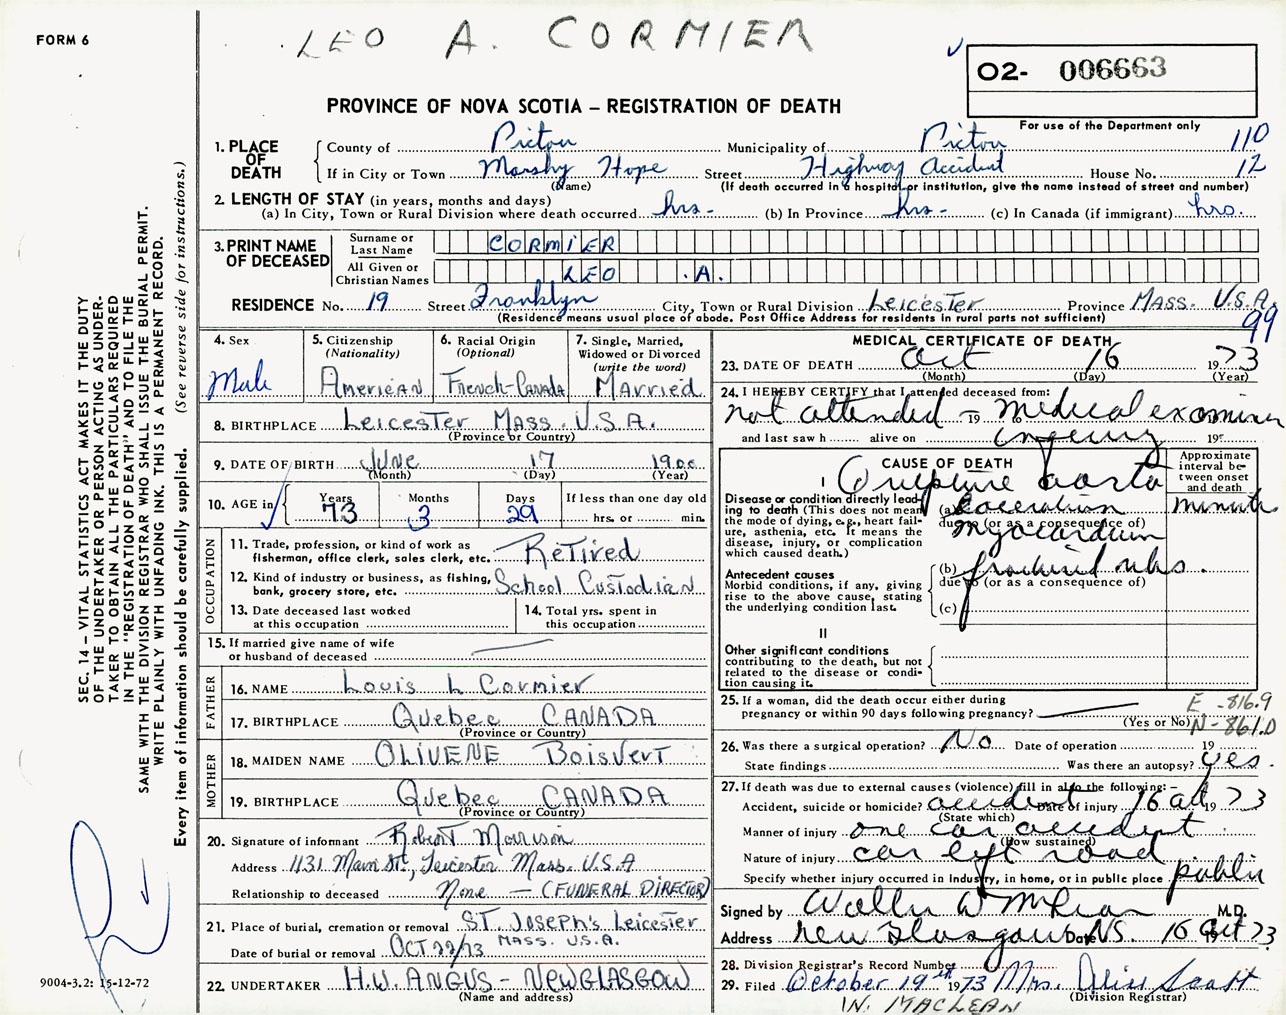 FORM 6
LEO A. CORMIER
O2- 006663
PROVINCE OF NOVA SCOTIA – REGISTRATION OF DEATH
For use of the Department only
1. PLACE OF DEATH
County of Pictou Municipality of Pictou 110
If in City or Town Marshy Hope Street Highway Accident House No. 12
(Name) (If death occurred in a hospital or institution, give the name instead of street and number)
2. LENGTH OF STAY (in years, months and days)
(a) In City, Town or Rural Division where death occurred hrs- (b) In Province hrs- (c) In Canada (if immigrant) hrs.
3. PRINT NAME OF DECEASED
Surname or Last Name CORMIER
All Given or Christian Names LEO .A.
RESIDENCE No. 19 Street Franklyn City, Town or Rural Division Leicester Province MASS. U.S.A.
(Residence means usual place of abode. Post Office Address for residents in rural parts not sufficient)
99
4. Sex
Male
5. Citizenship
(Nationality)
American
6. Racial Origin
(Optional)
French-Canada
7. Single, Married, Widowed or Divorced
(write the word)
Married
8. BIRTHPLACE Leicester Mass. U.S.A.
(Province or Country)
9. DATE OF BIRTH JUNE 17 1900
(Month) (Day) (Year)
10. AGE in
Years Months Days If less than one day old
73 3 29 hrs. or min.
OCCUPATION
11. Trade, profession, or kind of work as fisherman, office clerk, sales clerk, etc. Retired
12. Kind of industry or business, as fishing, bank, grocery store, etc. School Custodian
13. Date deceased last worked at this occupation
14. Total yrs. spent in this occupation
15. If married give name of wife or husband of deceased
FATHER
16. NAME Louis L Cormier
17. BIRTHPLACE Quebec CANADA
(Province or Country)
MOTHER
18. MAIDEN NAME OLIVENE Boisvert
19. BIRTHPLACE Quebec CANADA
(Province or Country)
20. Signature of informant Robert Morrison
Address 1131 Main St., Leicester Mass. U.S.A
Relationship to deceased None — (FUNERAL DIRECTOR)
21. Place of burial, cremation or removal ST. Joseph's Leicester
MASS. U.S.A.
Date of burial or removal OCT 22/73
22. UNDERTAKER H.W. ANGUS - NEW GLASGOW
(Name and address)
MEDICAL CERTIFICATE OF DEATH
23. DATE OF DEATH Oct 16 1973
(Month) (Day) (Year)
24. I HEREBY CERTIFY that I attended deceased from:
not attended 19 medical examiner
and last saw h alive on 19
CAUSE OF DEATH
Approximate interval between onset and death
I
Disease or condition directly leading to death (This does not mean the mode of dying, e.g., heart failure, asthenia, etc. It means the disease, injury, or complication which caused death.)
aorta
(a) laceration minutes
due to (or as a consequence of)
myocardium
Antecedent causes
Morbid conditions, if any, giving rise to the above cause, stating the underlying condition last.
(b) fractured ribs.
due to (or as a consequence of)
(c)
II
Other significant conditions contributing to the death, but not related to the disease or condition causing it.
25. If a woman, did the death occur either during pregnancy or within 90 days following pregnancy?
(Yes or No)
E -816.9
N-861.0
26. Was there a surgical operation? No Date of operation 19
State findings Was there an autopsy? yes.
27. If death was due to external causes (violence) fill in also the following:–
Accident, suicide or homicide? accident Date of injury 16 Oct 1973
(State which)
Manner of injury one car accident
(How sustained)
Nature of injury car left road
Specify whether injury occurred in Industry, in home, or in public place public
Signed by M.D.
Address New Glasgow NS. Date 16 Oct 1973
28. Division Registrar's Record Number
29. Filed October 19th 1973 Mrs. Alice Scott
(Division Registrar)
W. MACLEAN
SEC. 14 – VITAL STATISTICS ACT MAKES IT THE DUTY
OF THE UNDERTAKER OR PERSON ACTING AS UNDER-
TAKER TO OBTAIN ALL THE PARTICULARS REQUIRED
IN THE "REGISTRATION OF DEATH" AND TO FILE THE
SAME WITH THE DIVISION REGISTRAR WHO SHALL ISSUE THE BURIAL PERMIT.
WRITE PLAINLY WITH UNFADING INK. THIS IS A PERMANENT RECORD.
Every item of information should be carefully supplied. (See reverse side for instructions.)
9004-3.2: 15-12-72